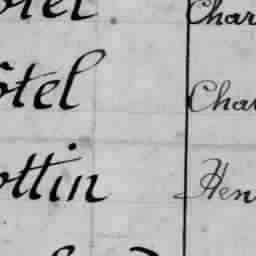 ôtel Char
ôtel Char
ottin Hen